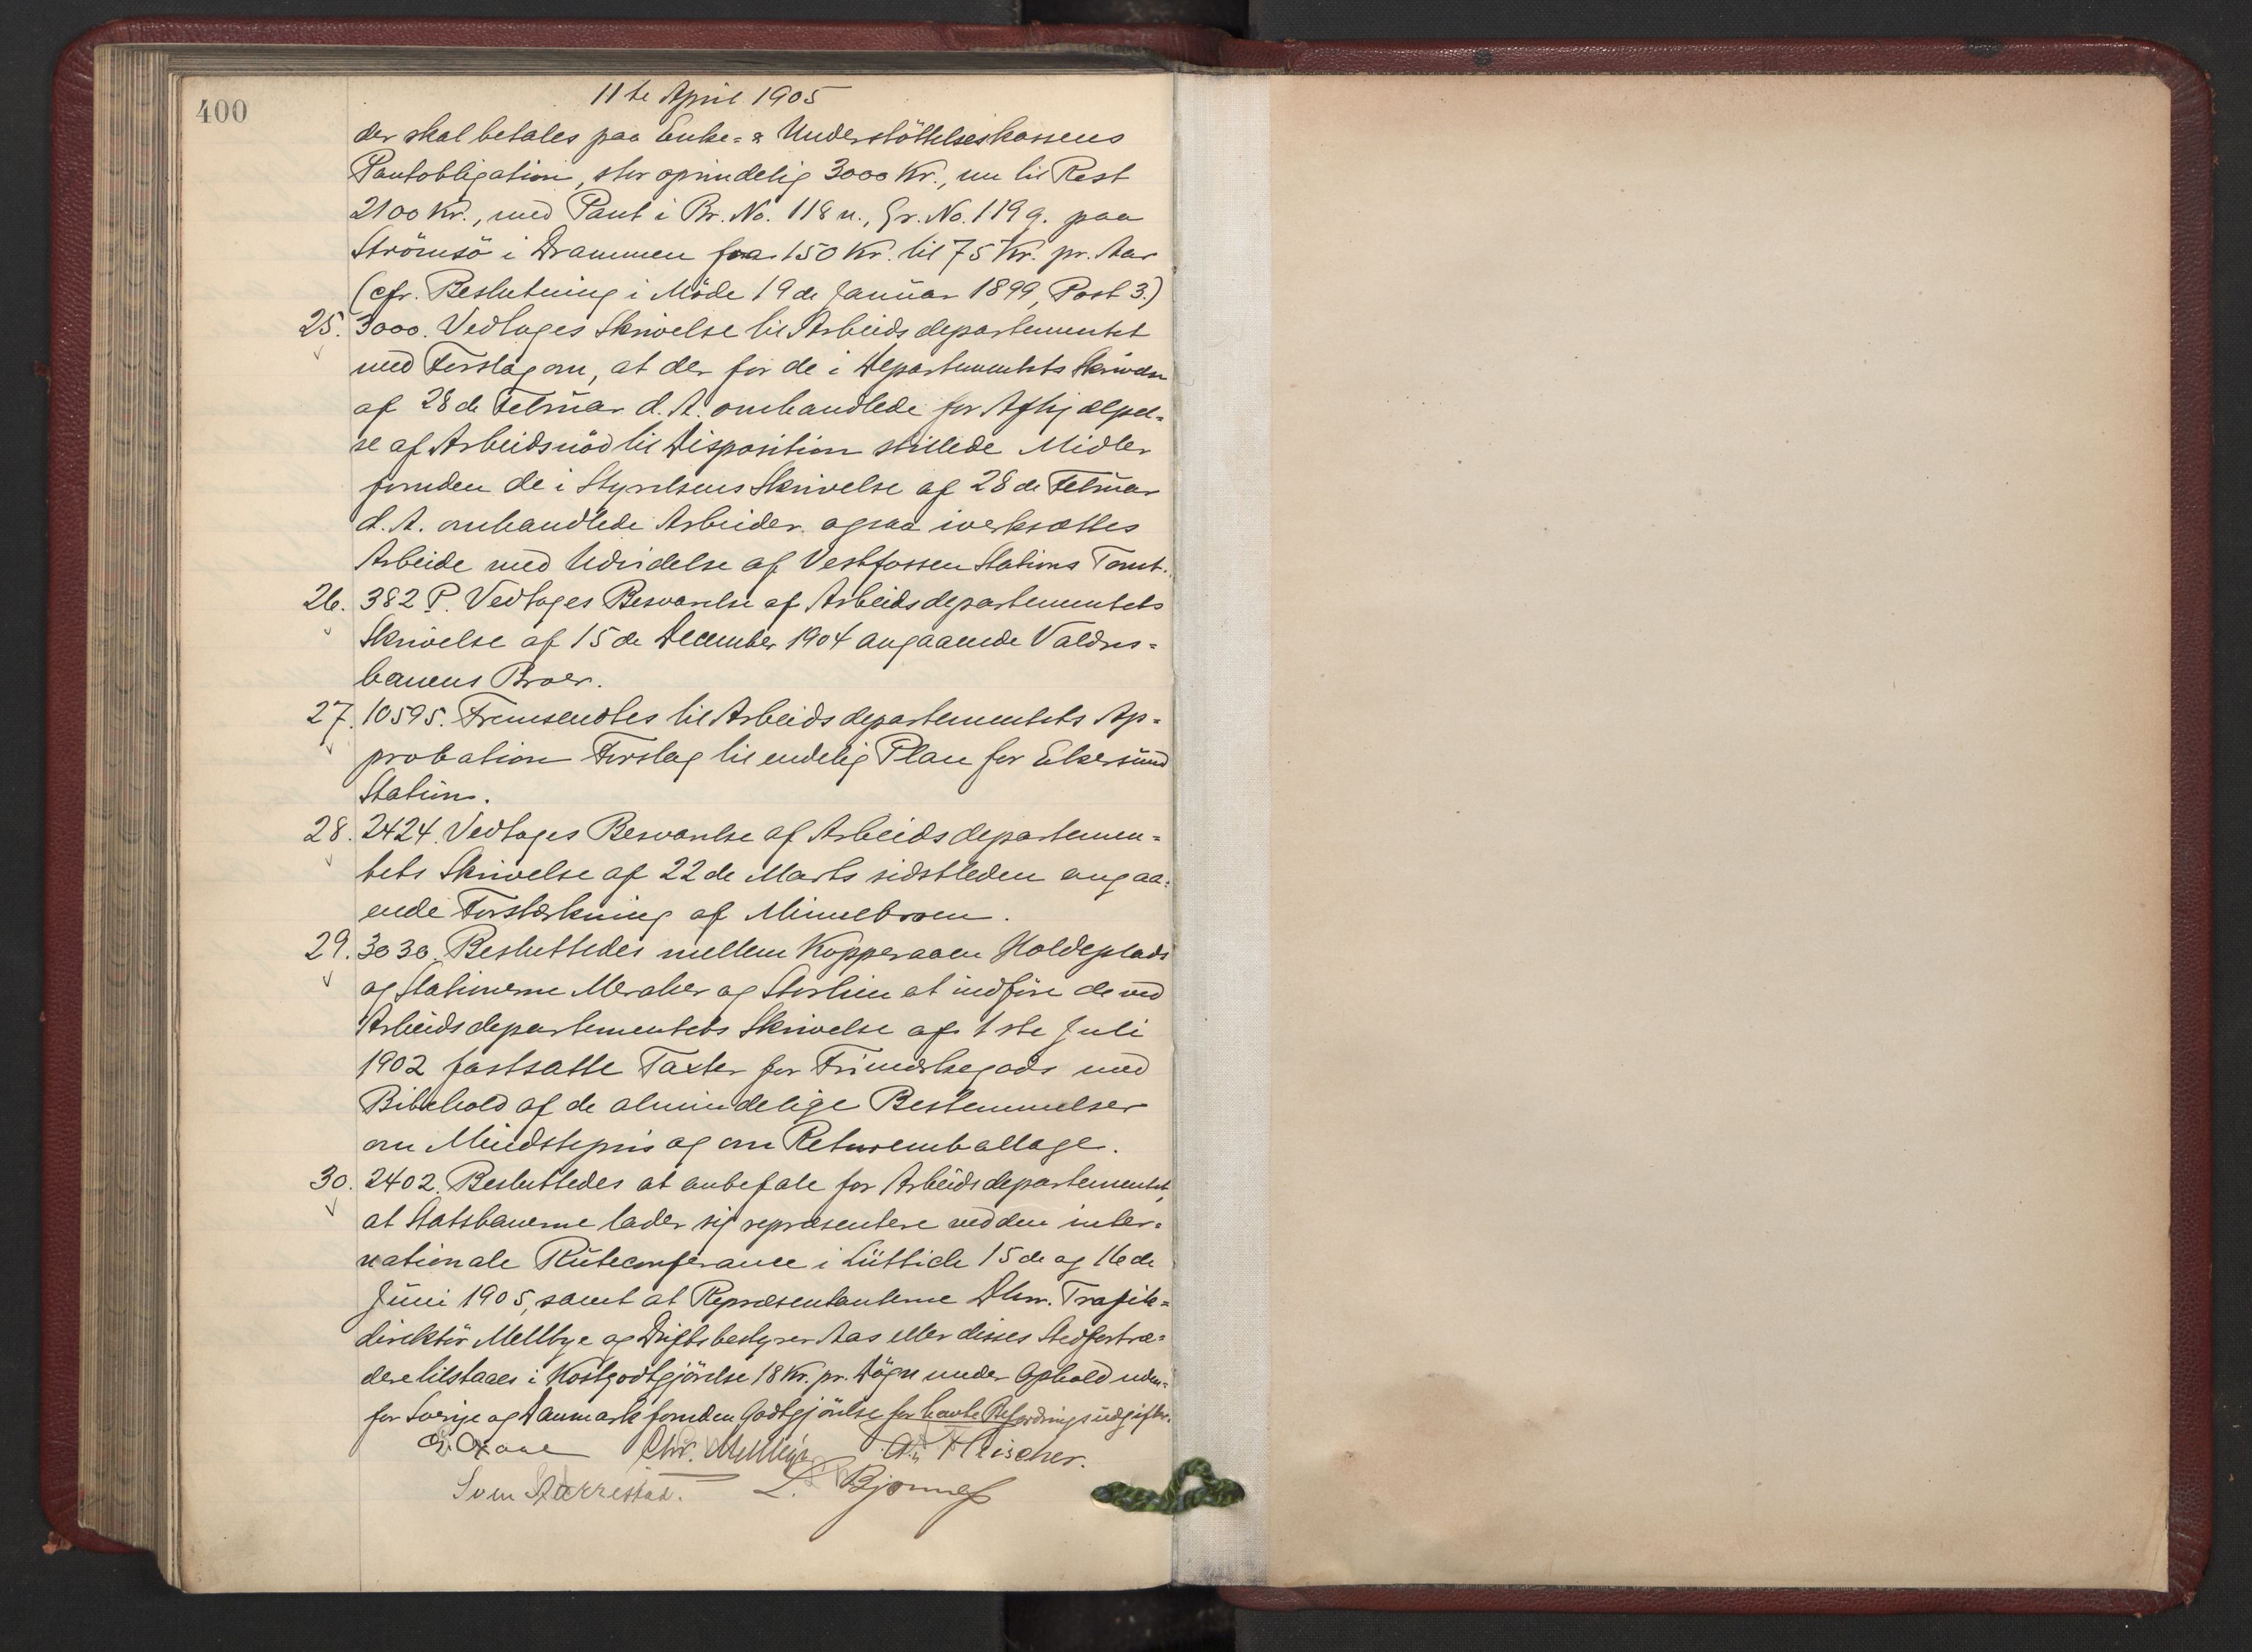 400
11te April 1905
der skal betales paa Enke- & Understöttelseskassens
Pantobligation, stor oprindelig 3000 Kr., nu til Rest
2100 Kr., med Pant i Br. No. 118 n., Gr. No. 119 q. paa
Strömsö i Drammen fra 150 Kr. til 75 Kr. pr. Aar
(cfr. Beslutning i Möde 19de Januar 1899, Post 3.)
25. 3000. Vedtoges Skrivelse til Arbeidsdepartementet
med Forslag om, at der for de i Departementets Skrivelse
af 28de Februar d. A. omhandlede for Afhjælpel-
se af Arbeidsnöd til Disposition stillede Midler
foruden de i Styrelsens Skrivelse af 28de Februar
d. A. omhandlede Arbeider ogsaa iverksættes
Arbeide med Udvidelse af Vestfossen Stations Tomt.
26. 382 P. Vedtoges Besvarelse af Arbeidsdepartementets
Skrivelse af 15de December 1904 angaaende Valdres-
banens Broer.
27. 10595. Fremsendtes til Arbeidsdepartementets Ap-
probation Forslag til endelig Plan for Ekersund
Station.
28. 2424. Vedtoges Besvarelse af Arbeidsdepartemen-
tets Skrivelse af 22de Marts sidstleden angaa-
ende Forstærkning af Minnebroen.
29. 3030. Besluttedes mellem Kopperaaen Holdeplads
og Stationerne Meraker og Storlien at indföre de ved
Arbeidsdepartementets Skrivelse af 1ste Juli
1902 fastsatte Taxter for Frimærkegods med
Bibehold af de almindelige Bestemmelser
om Mindstepris og om Returemballage.
30. 2402. Besluttedes at anbefale for Arbeidsdepartementet,
at Statsbanerne lader sig repræsentere ved den inter-
nationale Ruteconferance i Lüttich 15de og 16de
Juni 1905, samt at Repræsentanterne Dhrr. Trafik-
direktör Mellbye og Driftsbestyrer Aas eller disses Stedfortræ-
dere tilstaaes i Kostgodtgjörelse 18 Kr. pr. Dögn under Ophold uden-
for Sverige og Danmark foruden Godtgjörelse for havte Befordringsudgifter.
Chr. Mellbye Fleischer.
Sven Aarrestad. L. Bjonness